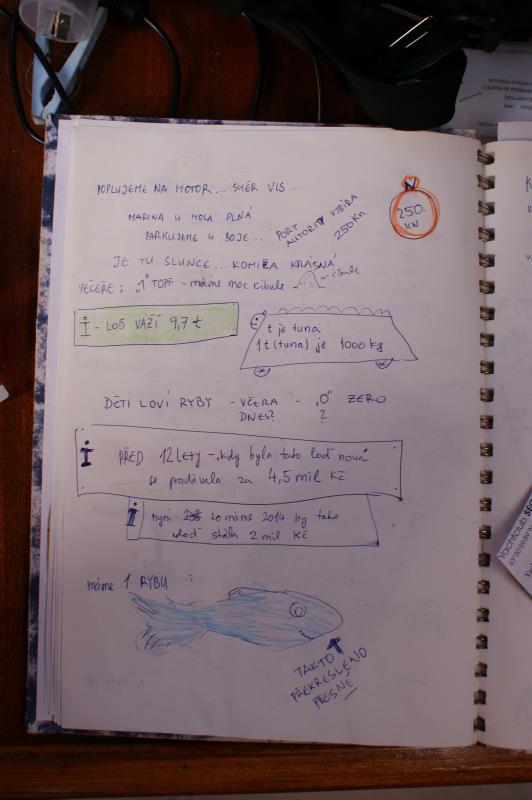 POPLUJEME NA MOTOR... SMĚR VIS
MARINA U MOLA PLNÁ
PARKUJEME U BOJE...
PORT
AUTORITY VYBÍRA
250 Kn
250.
KN
JE TU SLUNCE... KOMIŽA KRÁSNÁ
VEČEŘE: "1" TOPF - máme moc cibule
cibule
i - LOĎ VÁŽÍ 9,7 t
t je tuna
1t (tuna) je 1000 kg
DĚTI LOVÍ RYBY - VČERA - "0" ZERO
DNES? ?
I PŘED 12 LETY - kdy byla tato loď nová
se prodávala za 4,5 mil Kč
I nyní 2014 by tato
loď stála 2 mil Kč
máme 1. RYBU:
TAKTO
PŘEKRESLENO
PŘESNĚ
COUPON DE
DECLARAT
Yachtclub SE